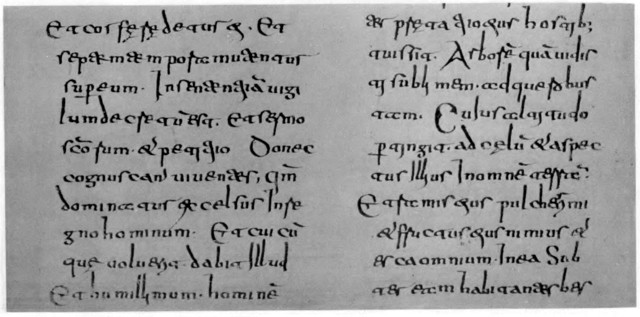 Et cor fęrę detur ei. Et
septem tempora mutentur
super eum. In sententiā uigi
lum decretū est. Et sermo
scōrum. et petitio Donec
cognuscant uiuentes, qm̄
dominatur excelsus In re
gno hominum. Et cui cū
que uoluerit. dabit Illud
Et humillimum. hominē
er pretatio eius hostib;
tuis sit. Arborē quā uidis
ti sublimem. adque robus
tam. Cuius altitudo
pertingit. ad cęlū et aspec
tus Illius In omnē terrā:
Et rami eius pulcherrimi
et fructus eius nimius et
esca omnium. In ea Sub
ter eam habitantes bes